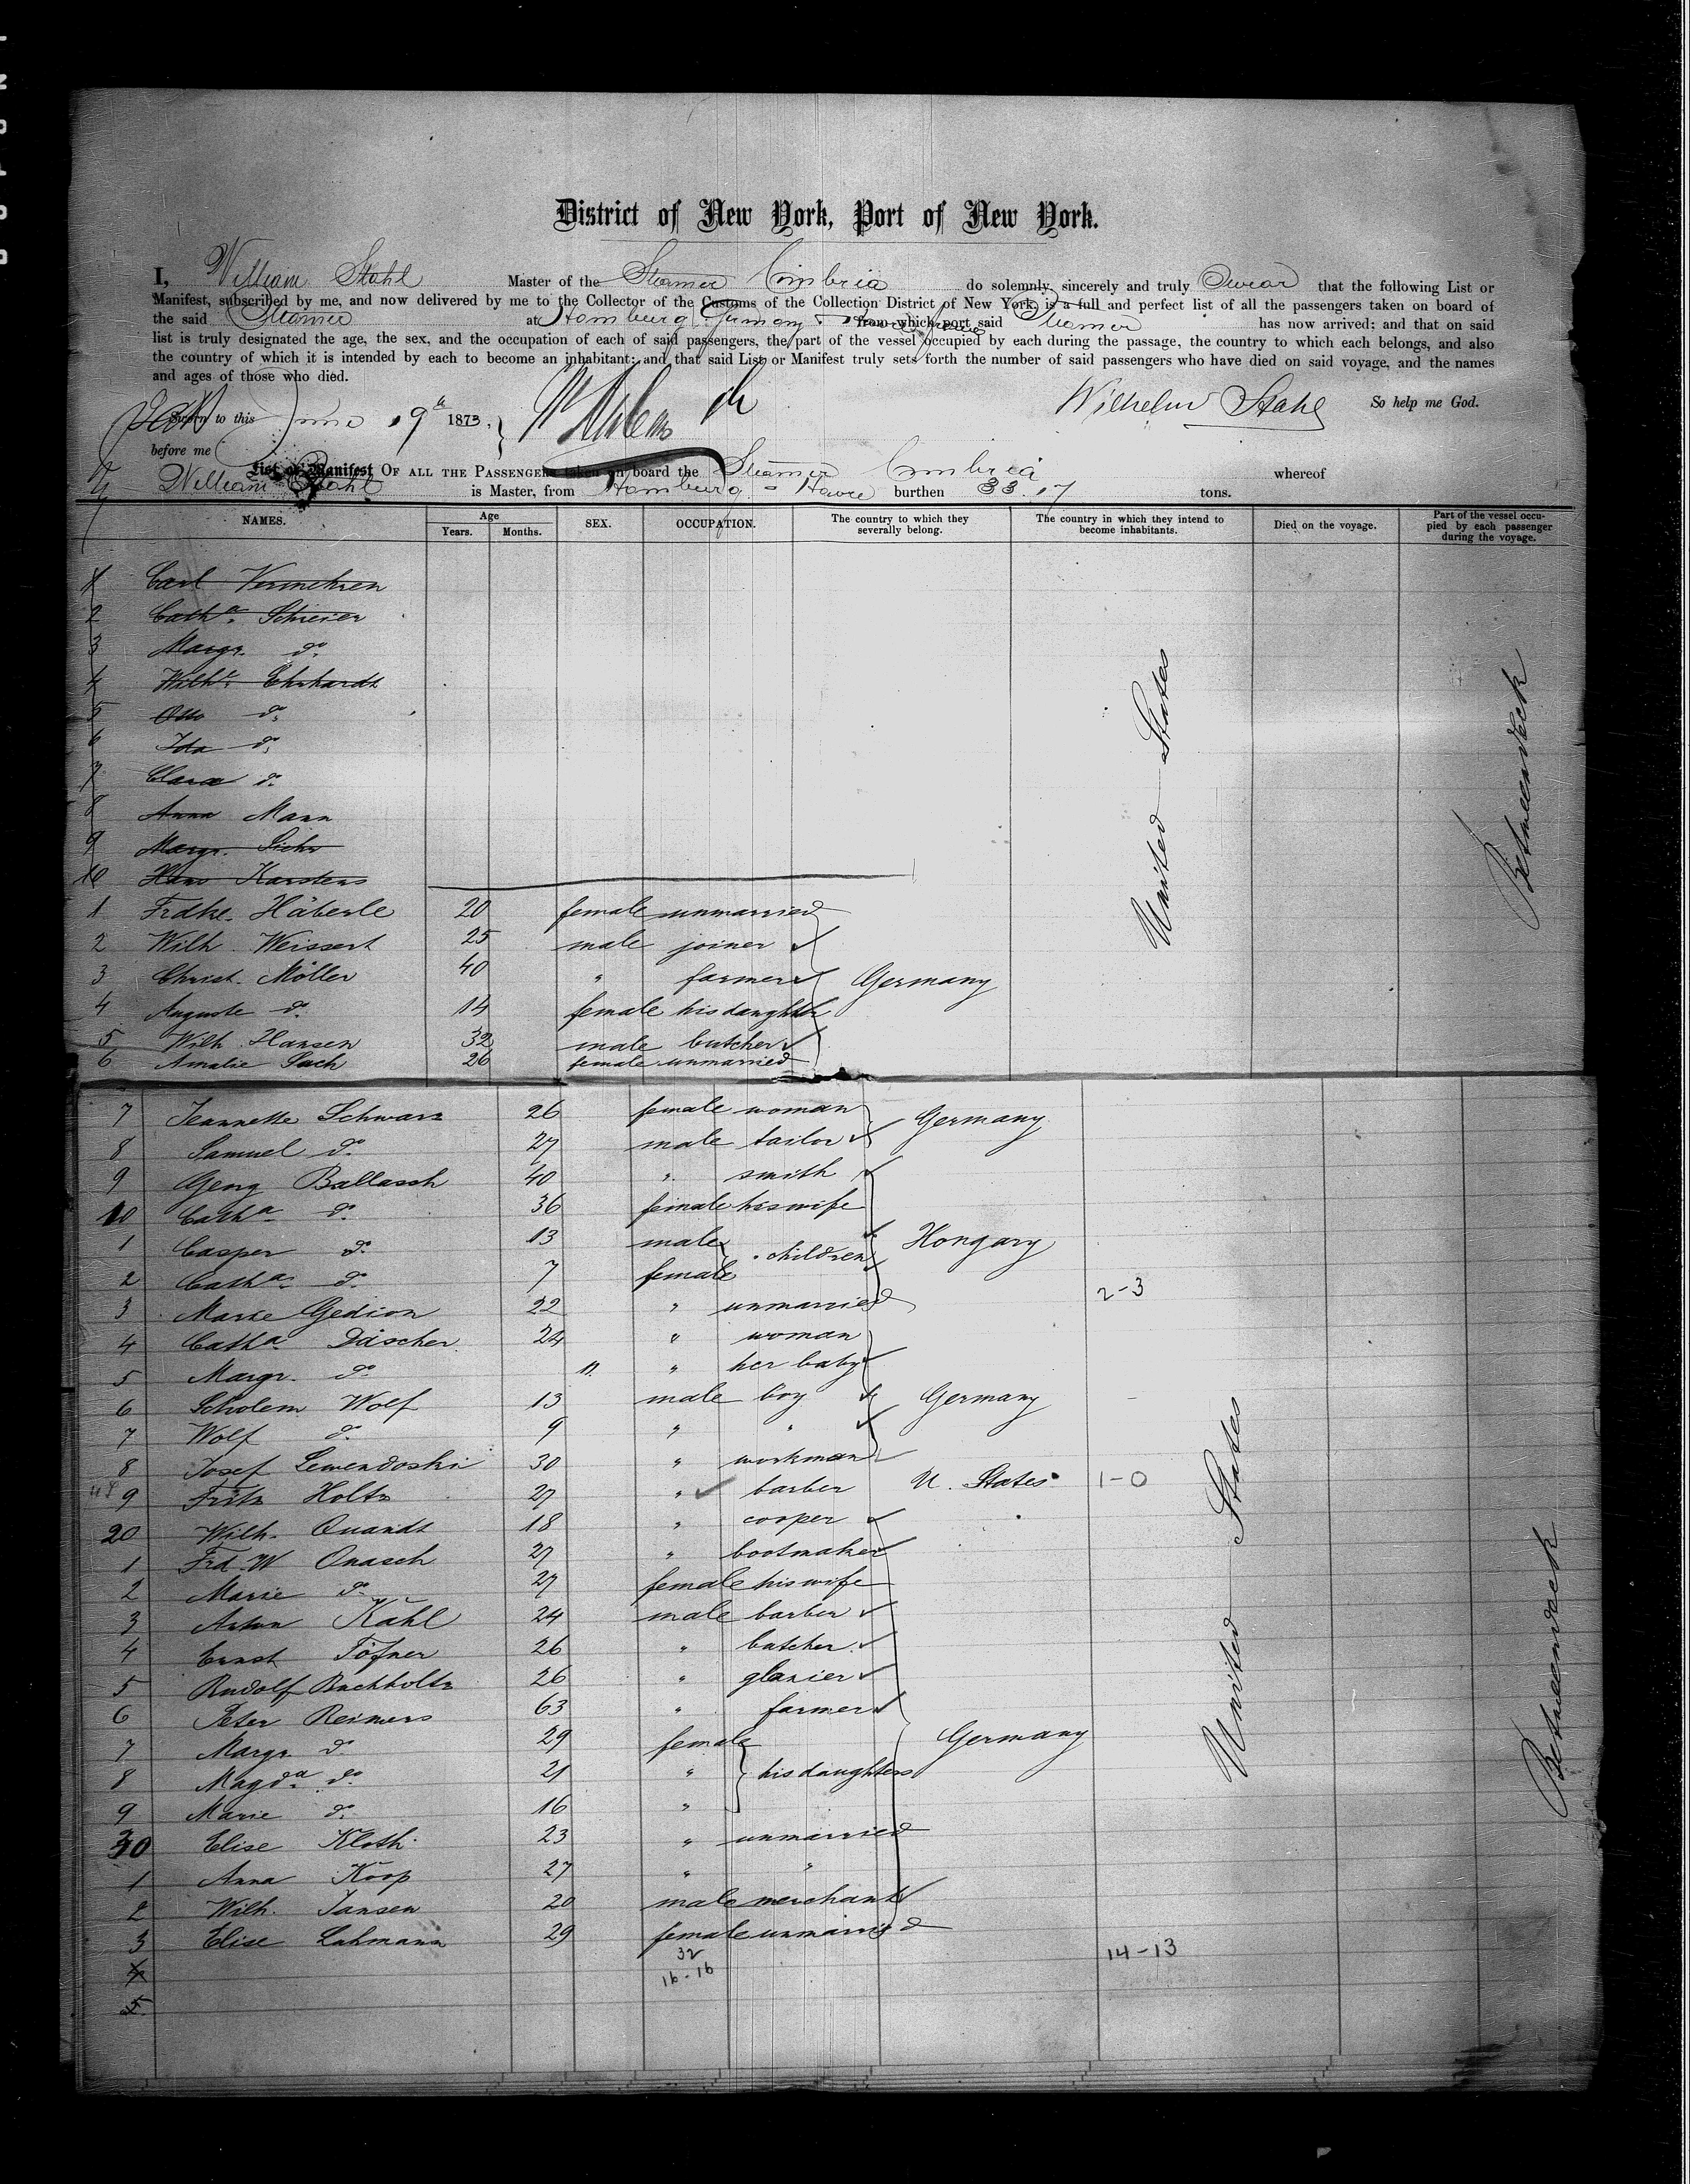 District of New York, Port of New York.
I, William Stahl Master of the Steamer Cimbria do solemnly, sincerely and truly Swear that the following List or
Manifest, subscribed by me, and now delivered by me to the Collector of the Customs of the Collection District of New York, is a full and perfect list of all the passengers taken on board of
the said Steamer at Hamburg Germany from which port said Steamer has now arrived; and that on said
list is truly designated the age, the sex, and the occupation of each of said passengers, the part of the vessel occupied by each during the passage, the country to which each belongs, and also
the country of which it is intended by each to become an inhabitant; and that said List or Manifest truly sets forth the number of said passengers who have died on said voyage, and the names
and ages of those who died.
Sworn to this June 19th 1873, Wilhelm Stahl So help me God.
before me
List or Manifest OF ALL THE PASSENGERS taken on board the Steamer Cimbria whereof
William Stahl is Master, from Hamburg - Havre burthen 33.17 tons.
NAMES. Age Years. Months. SEX. OCCUPATION. The country to which they severally belong. The country in which they intend to become inhabitants. Died on the voyage. Part of the vessel occupied by each passenger during the voyage.
1 Carl Vermehren
2 Catha. Schreier
3 Margr. do.
4 Wilhe. Ehrhardt
5 Otto do.
6 Ida do.
7 Clara do.
8 Anna Mann
9 Margr.
10 Hans Karstens
United States
Betweendeck
1 Frdke. Häberle 20 female unmarried
2 Wilh. Weissert 25 male joiner
3 Christ. Möller 40 " farmer Germany
4 Auguste do. 14 female his daughter
5 Wilh. Hansen 32 male butcher
6 Amalie Sach 26 female unmarried
7 Jeannette Schwarz 26 female woman Germany
8 Samuel do. 27 male tailor
9 Georg Ballasch 40 " smith
10 Catha. do. 36 female his wife
1 Casper do. 13 male children Hongary
2 Catha. do. 7 female
2-3
3 Marie Gedion 22 " unmarried
4 Catha. Däscher 24 " woman
5 Margr. do. 11. " her baby
6 Scholem Wolf 13 male boy Germany
7 Wolf do. 9 " "
8 Josef Lewendoski 30 " workman
9 Fritz Holtz 27 " barber U. States 1-0
20 Wilh. Quandt 18 " cooper
1 Frd. W Quasch 27 " bootmaker
2 Marie do. 27 female his wife
3 Anton Kahl 24 male barber
4 Ernst Töfner 26 " butcher
5 Rudolf Buchholtz 26 " glazier
6 Peter Reimers 63 " farmer
7 Margr. do. 29 female Germany
8 Magda. do. 21 " his daughters
9 Marie do. 16 "
30 Elise Kloth 23 " unmarried
1 Anna Koop 27 " "
2 Wilh. Jansen 20 male merchant
3 Elise Lahmann 29 female unmarried
4 32 14-13
16-16
5
United States
Betweendeck